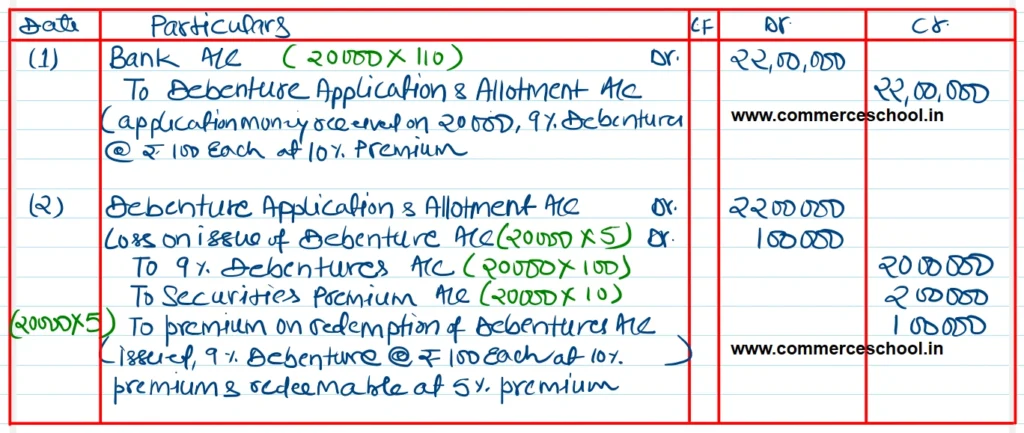 Date Particulars CF Dr. Cr.
(1) Bank A/c (20000 × 110) Dr. 22,00,000
To Debenture Application & Allotment A/c 22,00,000
(application money received on 20000, 9% Debenture
@ ₹ 100 Each at 10% Premium
www.commerceschool.in
(2) Debenture Application & Allotment A/c Dr. 2200000
Loss on issue of Debenture A/c (20000 × 5) Dr. 100000
To 9% Debentures A/c (20000 × 100) 2000000
To Securities Premium A/c (20000 × 10) 200000
(20000 × 5) To premium on redemption of Debentures A/c 100000
(issued, 9% Debenture @ ₹ 100 Each at 10%
premium & redeemable at 5% premium)
www.commerceschool.in